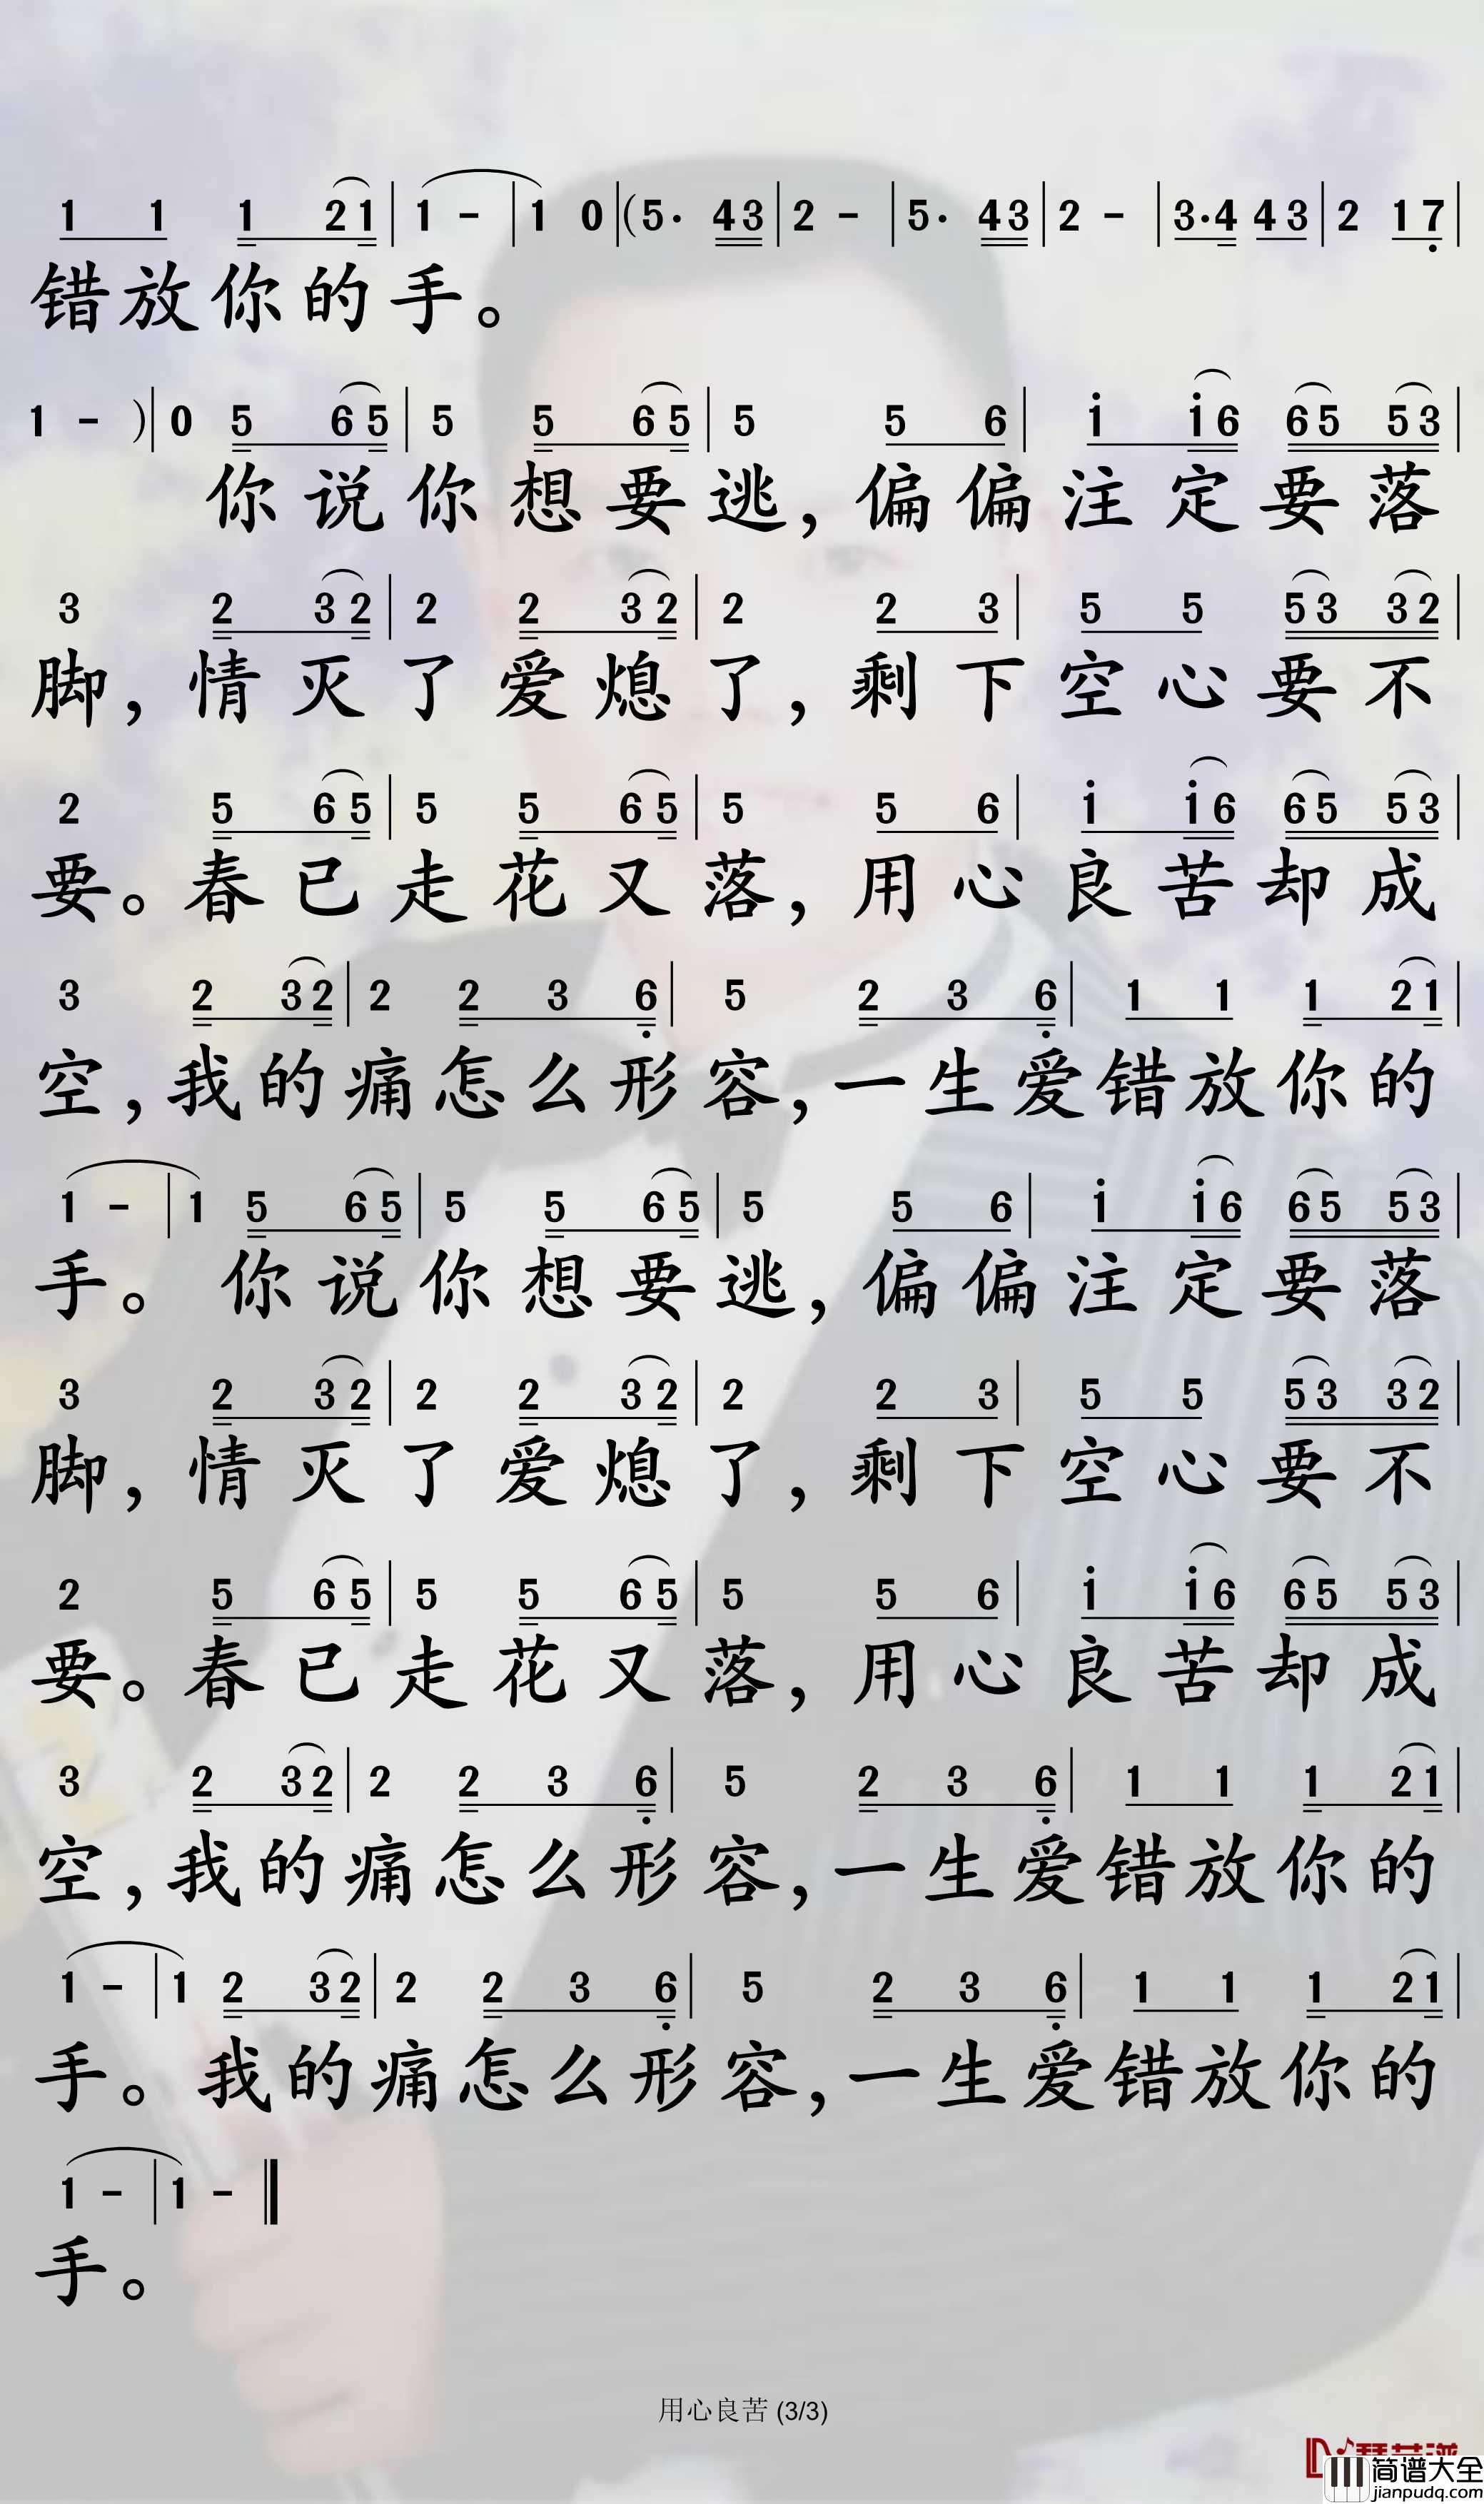 1 1 1 2 1 | 1 - | 1 0 | ( 5 · 4 3 | 2 - | 5 · 4 3 | 2 - | 3 · 4 4 3 | 2 1 7 |
错放你的手。
1 - ) | 0 5 6 5 | 5 5 6 5 | 5 5 6 | i i 6 6 5 5 3 |
你说你想要逃，偏偏注定要落
3 2 3 2 | 2 2 3 2 | 2 2 3 | 5 5 5 3 3 2 |
脚，情灭了爱熄了，剩下空心要不
2 5 6 5 | 5 5 6 5 | 5 5 6 | i i 6 6 5 5 3 |
要。春已走花又落，用心良苦却成
3 2 3 2 | 2 2 3 6 | 5 2 3 6 | 1 1 1 2 1 |
空，我的痛怎么形容，一生爱错放你的
1 - | 1 5 6 5 | 5 5 6 5 | 5 5 6 | i i 6 6 5 5 3 |
手。你说你想要逃，偏偏注定要落
3 2 3 2 | 2 2 3 2 | 2 2 3 | 5 5 5 3 3 2 |
脚，情灭了爱熄了，剩下空心要不
2 5 6 5 | 5 5 6 5 | 5 5 6 | i i 6 6 5 5 3 |
要。春已走花又落，用心良苦却成
3 2 3 2 | 2 2 3 6 | 5 2 3 6 | 1 1 1 2 1 |
空，我的痛怎么形容，一生爱错放你的
1 - | 1 2 3 2 | 2 2 3 6 | 5 2 3 6 | 1 1 1 2 1 |
手。我的痛怎么形容，一生爱错放你的
1 - | 1 - ‖
手。
用心良苦 (3/3)
简谱大全
jianpudq.com